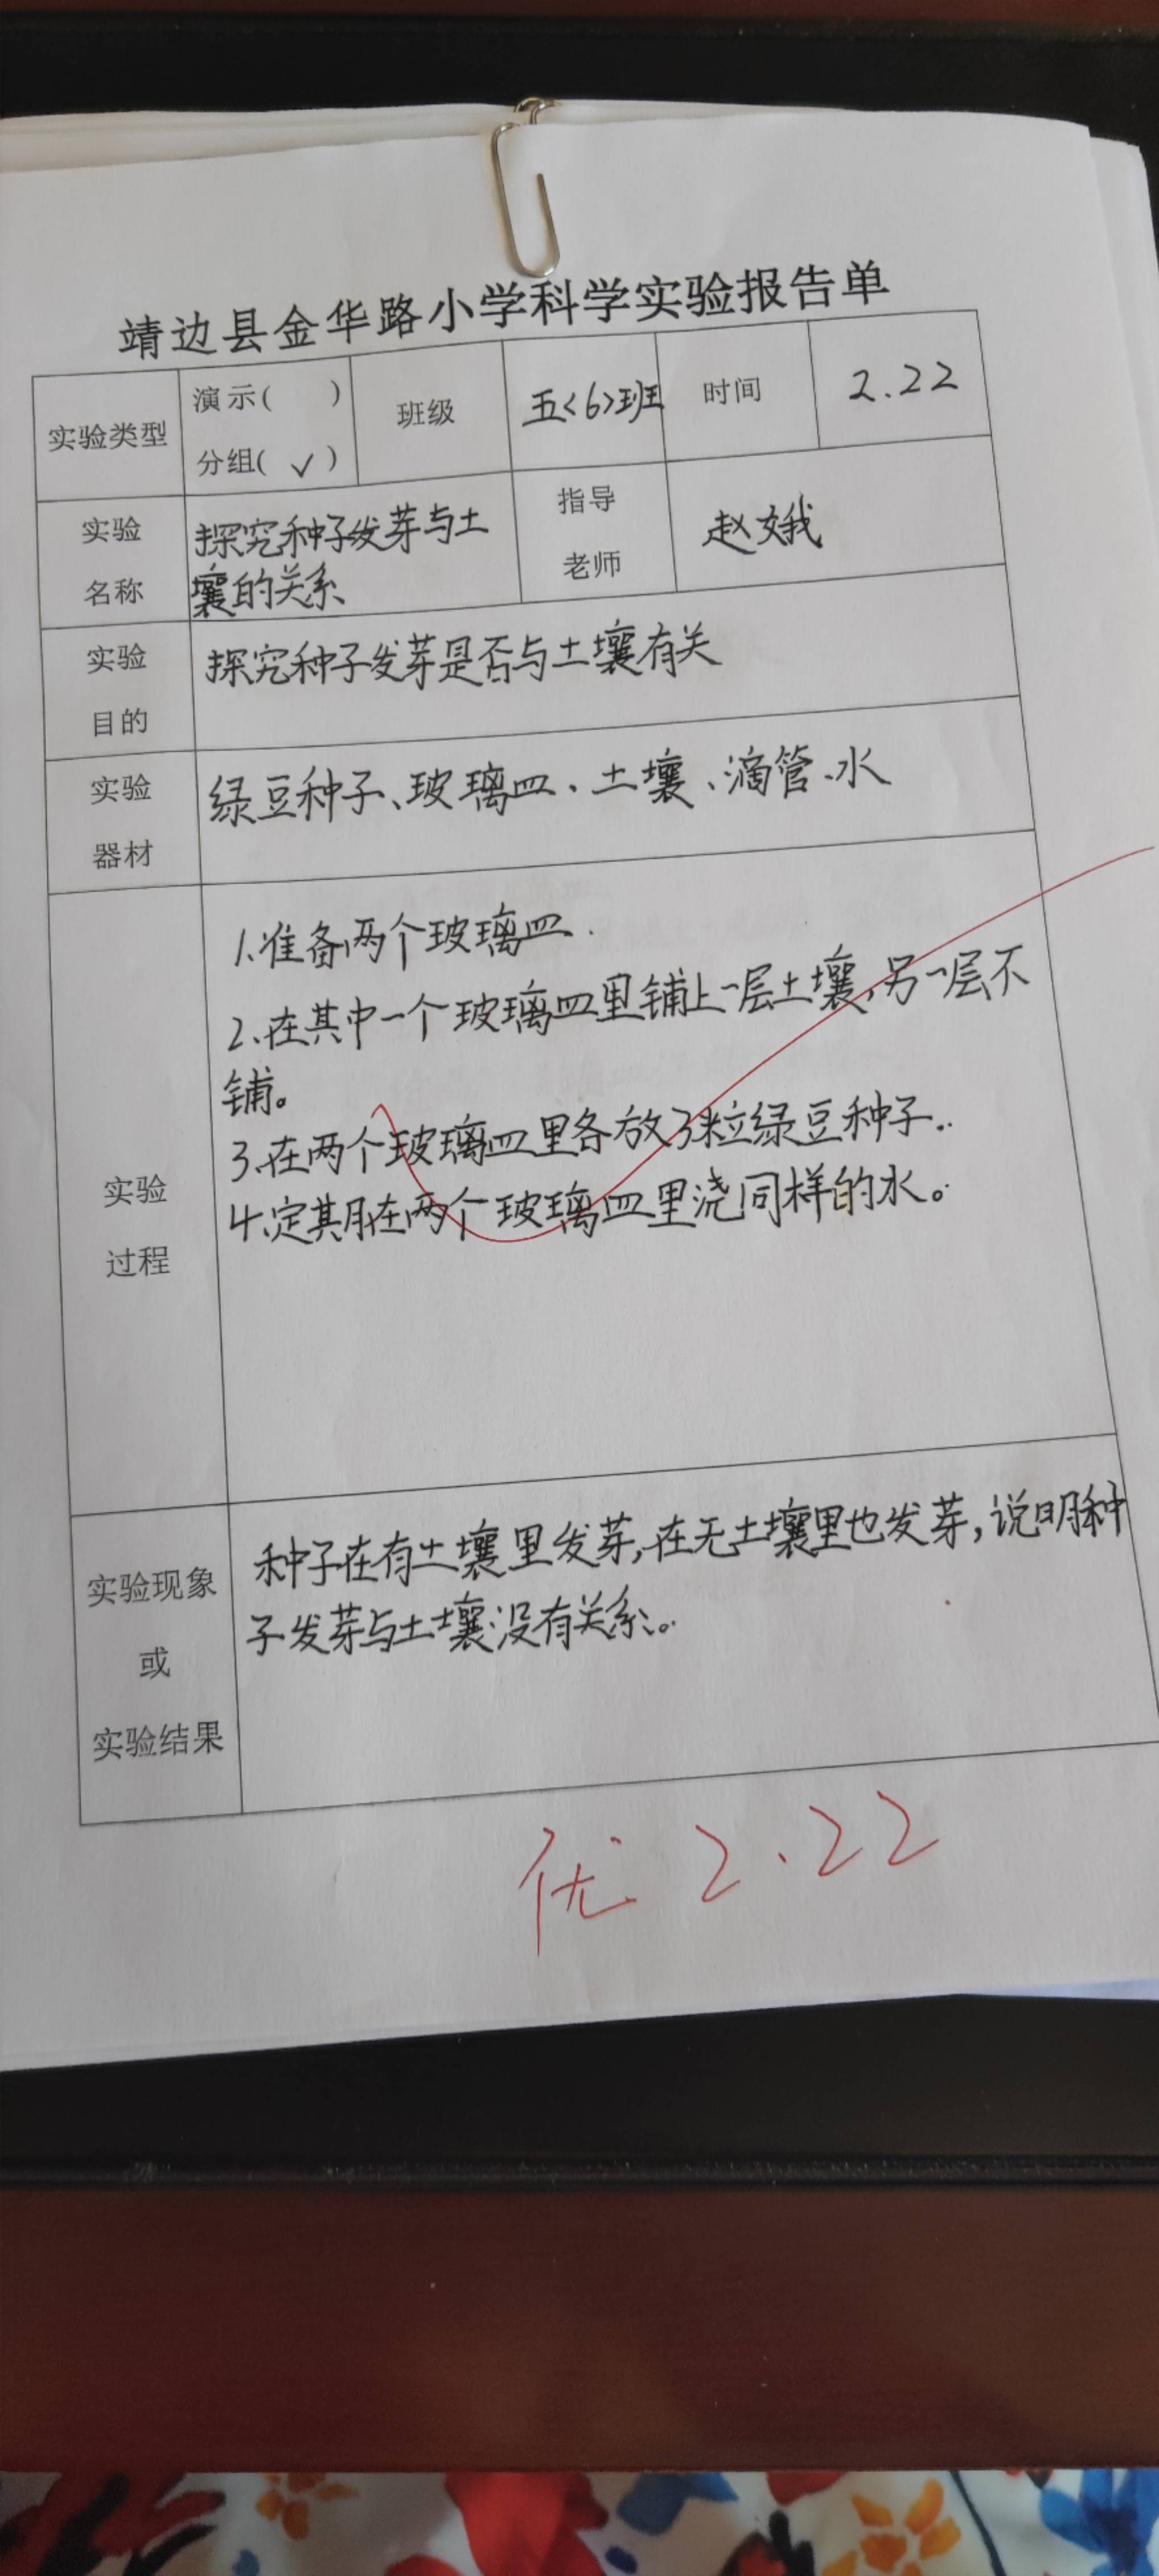 靖边县金华路小学科学实验报告单
实验类型
演示( )
分组( ✓ )
班级
五<6>班
时间
2.22
实验
名称
探究种子发芽与土
壤的关系
指导
老师
赵娥
实验
目的
探究种子发芽是否与土壤有关
实验
器材
绿豆种子、玻璃皿、土壤、滴管、水
实验
过程
1.准备两个玻璃皿.
2.在其中一个玻璃皿里铺上一层土壤,另一层不
铺。
3.在两个玻璃皿里各放3粒绿豆种子..
4.定其月在两个玻璃皿里浇同样的水。
实验现象
或
实验结果
种子在有土壤里发芽,在无土壤里也发芽,说明种
子发芽与土壤没有关系。
优 2.22